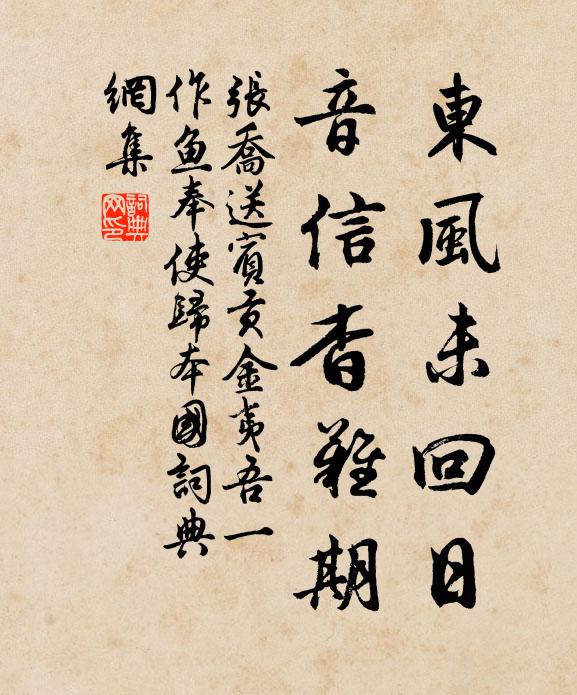 東風未回日
音信杳難期
張喬送賓貢金夷吾一
作魚奉使歸本國詞典
網集
詞典網印